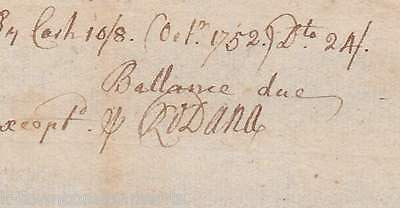 By Cash 10/8. (Octr. 1752.) Dto 24/.
Ballance due
Except'd. ⅌ RoDana